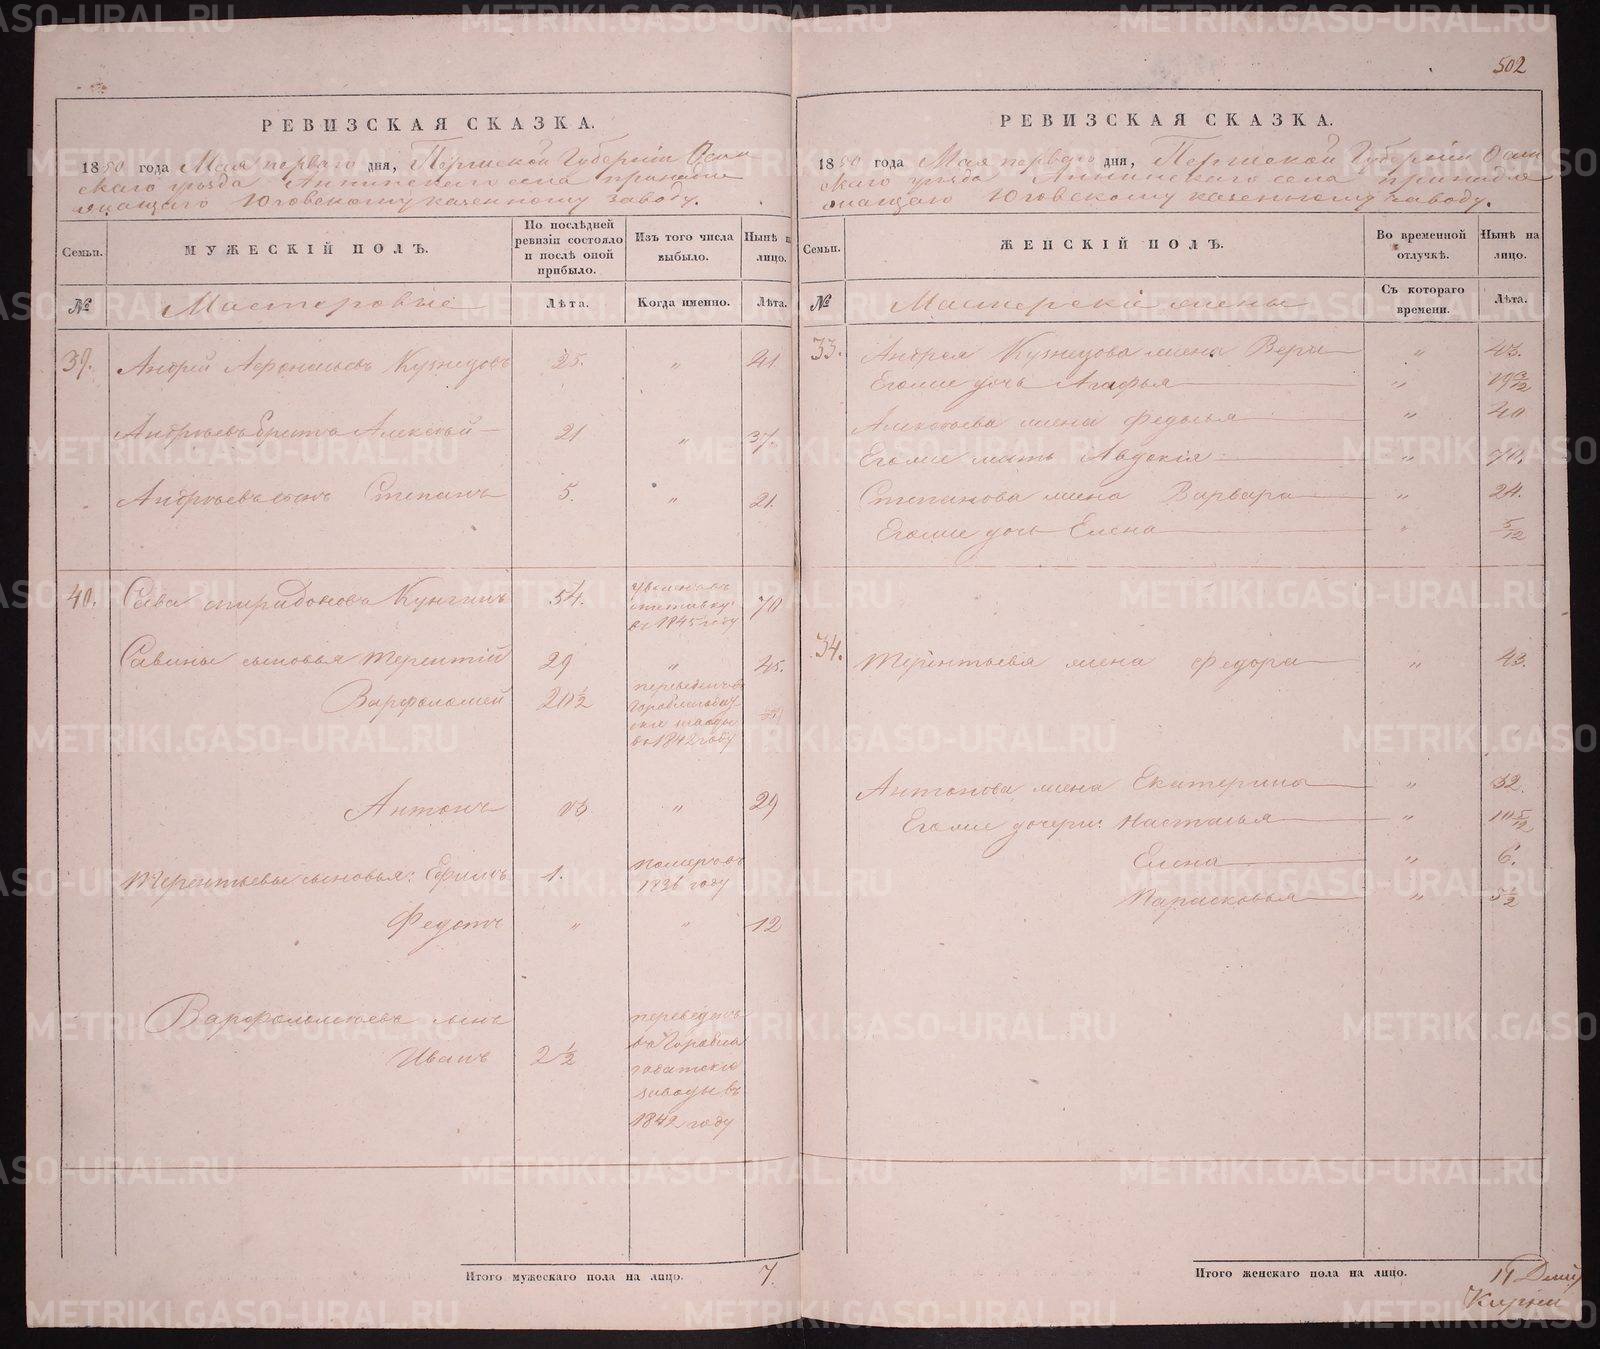 502
РЕВИЗСКАЯ СКАЗКА.
1850 года Мая перваго дня, Пермской Губерніи Осин
скаго уѣзда Аннинскаго села принадле
жащаго Юговскому казенному заводу.
Семьи.
МУЖЕСКІЙ ПОЛЪ.
По послѣдней ревизіи состояло и послѣ оной прибыло.
Изъ того числа выбыло.
Нынѣ на лицо.
№
Мастеровые
Лѣта.
Когда именно.
Лѣта.
39. Андрей Афонасьевъ Кузнецовъ 25. " 41
Андреевъ братъ Алексѣй 21 " 37.
Андреевъ сынъ Степанъ 5. " 21.
40. Сава Спиридоновъ Кунгинъ 54. въ 1845 году 70
Савины сыновья Терентій 29 " 45.
Варфоломей 20½ въ 1842 году
Антонъ 13 " 29
Терентьевы сыновья: Ефимъ 1. померъ въ
1836 году
Федотъ " " 12
Варфоломеевъ сынъ
Иванъ 2½ переведенъ
въ Гороблаго
датскіе
заводы въ
1842 году
Итого мужескаго пола на лицо. 7.
РЕВИЗСКАЯ СКАЗКА.
1850 года Мая перваго дня, Пермской Губерніи Осин
скаго уѣзда Аннинскаго села принадле
жащаго Юговскому казенному заводу.
Семьи.
ЖЕНСКІЙ ПОЛЪ.
Во временной отлучкѣ.
Нынѣ на лицо.
№
Мастерскіе жены
Съ котораго времени.
Лѣта.
33. Андрея Кузнецова жена Вера " 43.
Егоже дочь Агафья "
Алексѣева жена Федосья " 40
Егоже мать Авдокія " 70.
Степанова жена Варвара " 24.
Егоже дочь Елена " 5/12
34. Терентьева жена Федора " 43.
Антонова жена Екатерина " 32.
Егоже дочери: Настасья " 10 5/12
Елена " 6.
Парасковья "
Итого женскаго пола на лицо. 11
METRIKI.GASO-URAL.RU